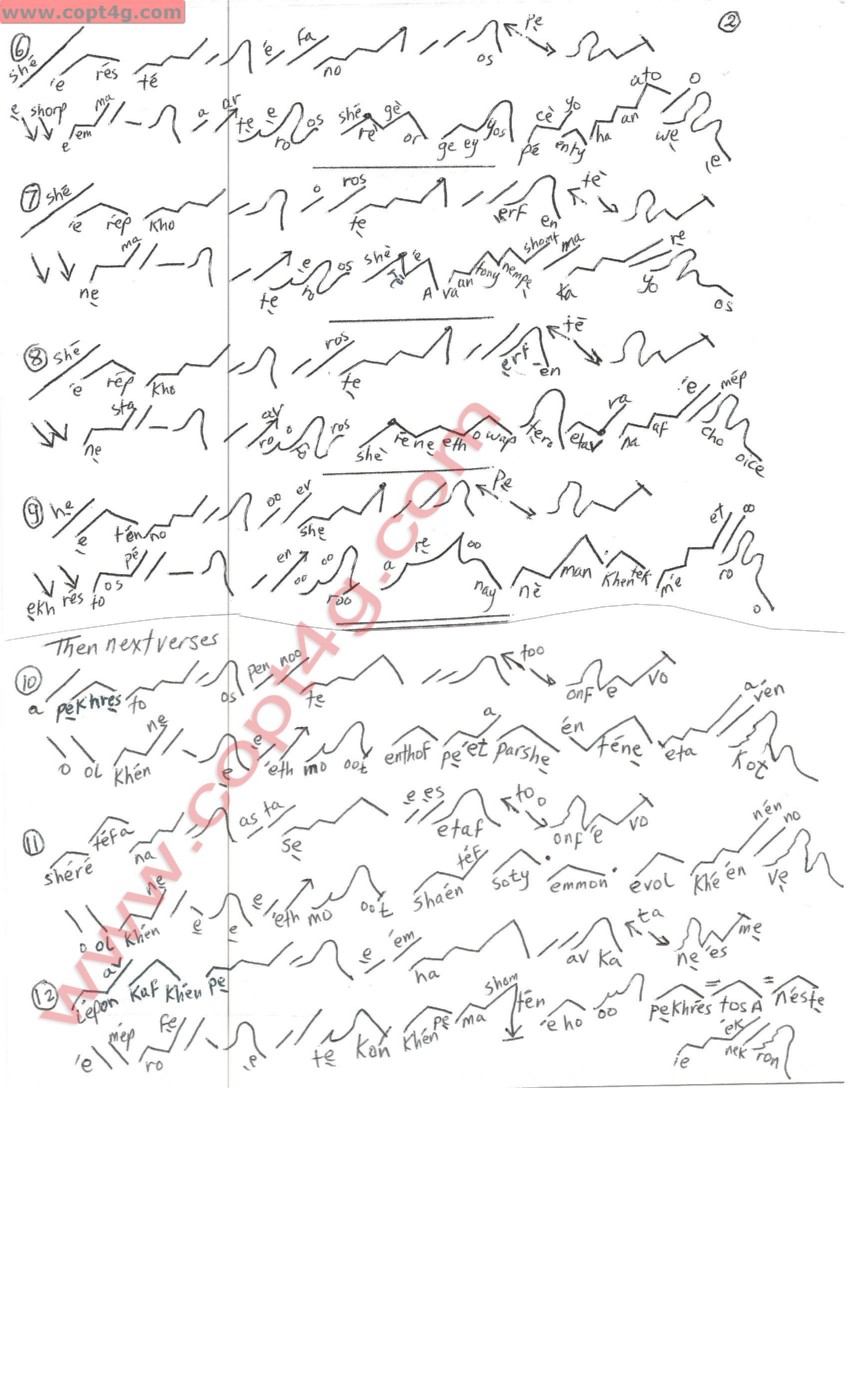 www.copt4g.com
②
⑥ shé ie rés té é Fa no os Pe
e shorp e em ma a ar te e ro os shé re gè or ge ey yos pé cè yo enty ha an ato o we ie
⑦ shé ie rép kho o ros te erf en tè
ne ma te e ro os shè e A va an tony nempe shomt ma ka yo re os
⑧ shé ie rép kho ros te erf en tè
ne sta av ro o ros shè re ne eth o wap tero etav va na af ie mép cho oice
⑨ he e tén no oo ev she Pe
ekh rés to os pé en oo oo roo a re oo nay nè man khen tek mie et oo ro o
Then next verses
⑩ a pékhres to os pen noo te too onf e vo
o ol khén ne e e eth mo oot enthof pe et a parshe én téne eta a vén kot
⑪ shéré téfa na as ta se e es etaf too onf e vo
o ol khén ne e e e eth mo oot shaén téf soty emmon evol khe én nén no ve
⑫ iepon av kaf khén pe e ém ha av ka ta ne es me
é mép ro fe ie te kon khén pe ma shom tén é ho oo pekhrés tos A néste
ie ek nek ron
www.copt4g.com